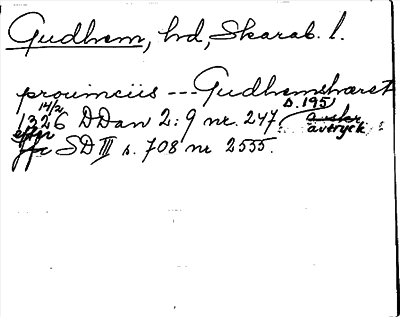 Gudhem, hd, Skarab. l.
prouinciis --- Gudhemshæret
14/2 s. 195
1326 DDan 2:9 nr. 247 avskr.
efter avtryck
jfr SD III s. 708 nr 2555.